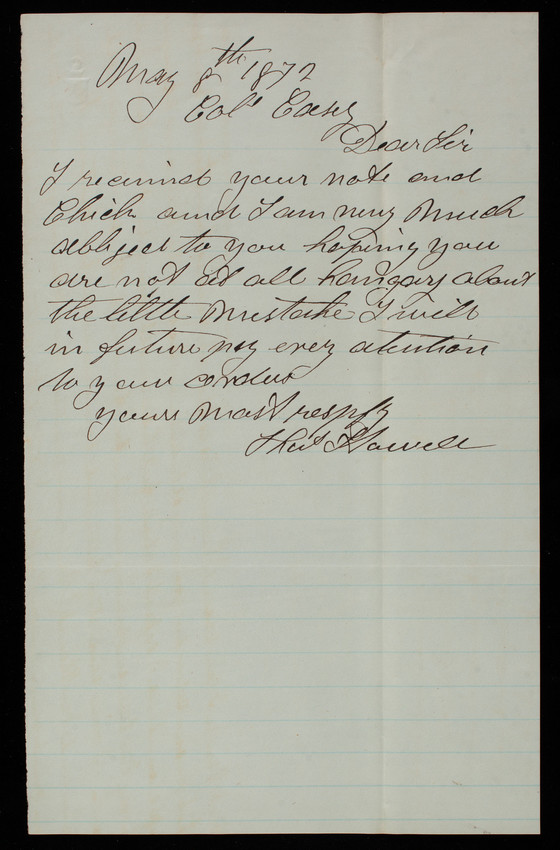 May 8th 1872
Col. Casey
Dear Sir
I received your note and
Check and I am very Much
obliged to you hoping you
are not at all hangary about
the little Mistake I will
in future pay every atention
to your orders
yours Most respfy
Howell